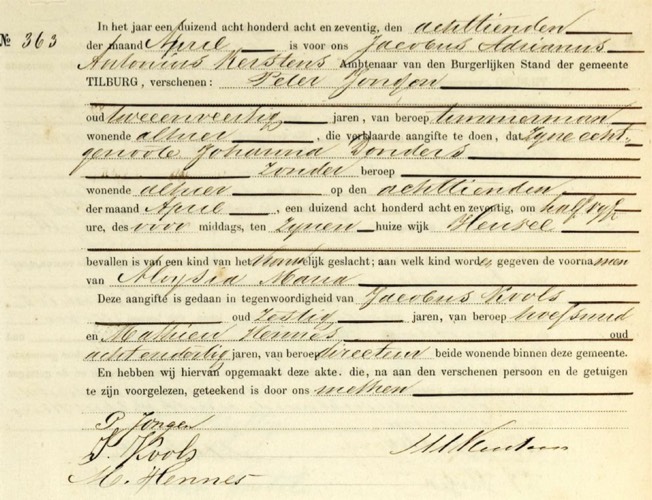 № 363
In het jaar een duizend acht honderd acht en zeventig, den achttienden
der maand April is voor ons Jacobus Adrianus
Antonius Kerstens Ambtenaar van den Burgerlijken Stand der gemeente
TILBURG, verschenen: Peter Jongen
oud tweeenveertig jaren, van beroep timmerman
wonende alhier, die verklaarde aangifte te doen, dat Zijne echt-
genoote Johanna Donders
Zonder beroep
wonende alhier op den achttienden
der maand April, een duizend acht honderd acht en zeventig, om half vijf
ure, des voor middags, ten Zijnen huize wijk Heusel
bevallen is van een kind van het vrouwelijk geslacht; aan welk kind worden gegeven de voornamen
van Aloysia Maria
Deze aangifte is gedaan in tegenwoordigheid van Jacobus Kools
oud Zestig jaren, van beroep hoefsmid
en Mathieu Hennes oud
achtendertig jaren, van beroep directeur beide wonende binnen deze gemeente.
En hebben wij hiervan opgemaakt deze akte. die, na aan den verschenen persoon en de getuigen
te zijn voorgelezen, geteekend is door ons met hen
P. Jongen
J. Kools
M. Hennes